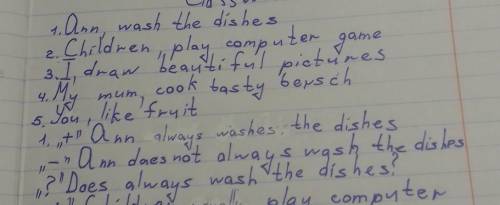 1. Ann, wash the dishes
2. Children, play computer game
3. I, draw beautiful pictures
4. My mum, cook tasty bersch
5. You, like fruit
1. „+" Ann always washes the dishes
„-" Ann does not always wash the dishes
„?" Does always wash the dishes?
play computer